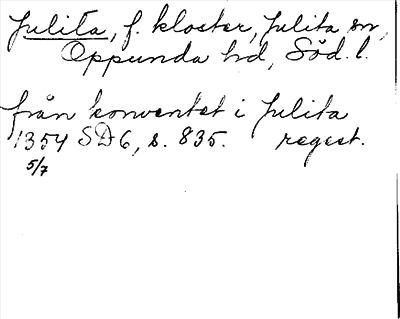 Julita, f. kloster, Julita sn,
Oppunda hd, Söd. l.
från konventet i Julita
1354 SD 6, s. 835. regest.
5/7